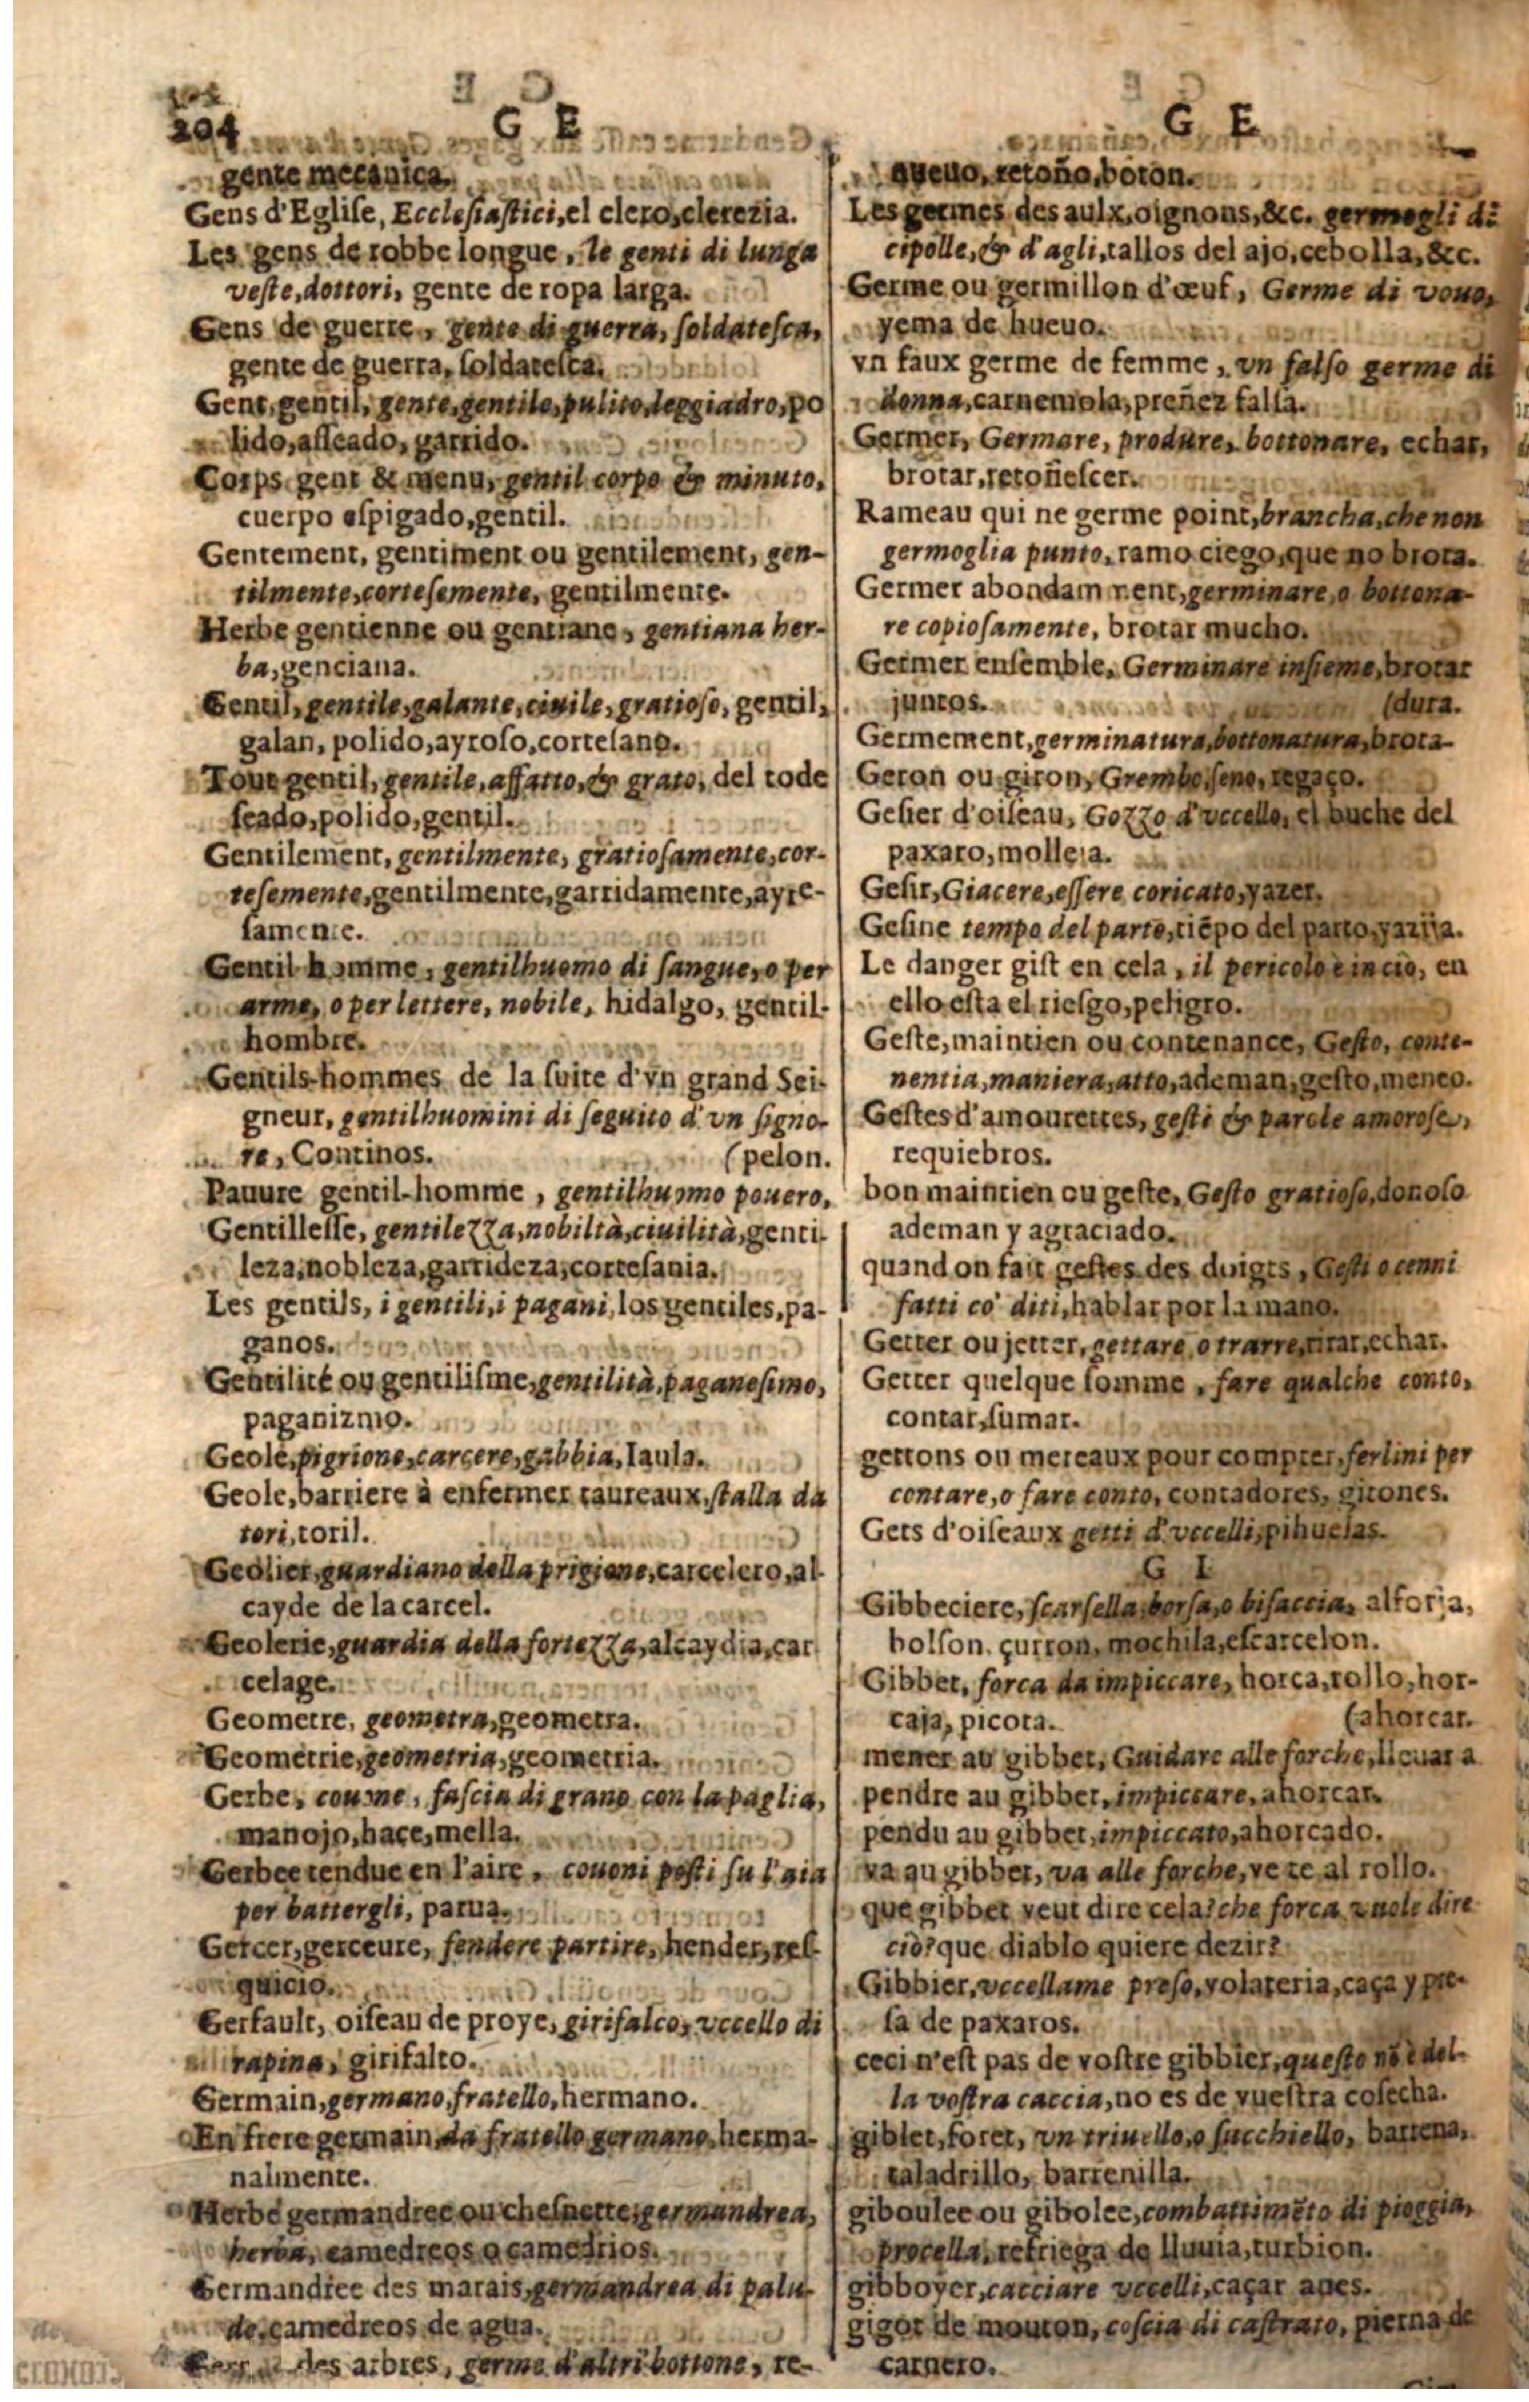 204
G E
gente mecanica.
Gens d'Egliſe, Eccleſiaſtici, el clero, clerezia.
Les gens de robbe longue, le genti di lunga
veſte, dottori, gente de ropa larga.
Gens de guerre, gente di guerra, ſoldateſca,
gente de guerra, ſoldateſca.
Gent, gentil, gente, gentile, pulito, leggiadro, po
lido, aſſeado, garrido.
Corps gent & menu, gentil corpo & minuto,
cuerpo eſpigado, gentil.
Gentement, gentiment ou gentilement, gen-
tilmente, corteſemente, gentilmente.
Herbe gentienne ou gentiane, gentiana her-
ba, genciana.
Gentil, gentile, galante, ciuile, gratioſo, gentil,
galan, polido, ayroſo, corteſano.
Tout gentil, gentile, affatto, & grato, del tode
ſeado, polido, gentil.
Gentilement, gentilmente, gratioſamente, cor-
teſemente, gentilmente, garridamente, ayre-
ſamente.
Gentil homme, gentilhuomo di ſangue, o per
arme, o per lettere, nobile, hidalgo, gentil-
hombre.
Gentils-hommes de la ſuite d'vn grand Sei-
gneur, gentilhuomini di ſeguito d'vn ſigno-
re, Continos. (pelon.
Pauure gentil-homme, gentilhuomo pouero,
Gentilleſſe, gentilezza, nobiltà, ciuilità, genti-
leza, nobleza, garrideza, corteſania.
Les gentils, i gentili, i pagani, los gentiles, pa-
ganos.
Gentilité ou gentiliſme, gentilità, paganeſimo,
paganizmo.
Geole, pigrione, carcere, gabbia, Iaula.
Geole, barriere à enfermer taureaux, ſtalla da
tori, toril.
Geolier, guardiano della prigione, carcelero, al-
cayde de la carcel.
Geolerie, guardia della fortezza, alcaydia, car
celage.
Geometre, geometra, geometra.
Geometrie, geometria, geometria.
Gerbe, couone, faſcia di grano con la paglia,
manojo, hace, mella.
Gerbee tendue en l'aire, couoni poſti ſu l'aia
per battergli, parua.
Gercer, gerceure, fendere partire, hender, reſ-
quicio.
Gerfault, oiſeau de proye, girifalco, vccello di
rapina, girifalto.
Germain, germano, fratello, hermano.
En frere germain, da fratello germano, herma-
nalmente.
Herbe germandree ou cheſnette, germandrea,
herba, camedreos o camedrios.
Germandree des marais, germandrea di palu-
de, camedreos de agua.
des arbres, germe d'altri bottone, re-
G E
nueuo, retoño, boton.
Les germes des aulx, oignons, &c. germogli di
cipolle, & d'agli, tallos del ajo, cebolla, &c.
Germe ou germillon d'œuf, Germe di vouo,
yema de hueuo.
vn faux germe de femme, vn falſo germe di
donna, carnemola, preñez falſa.
Germer, Germare, produre, bottonare, echar,
brotar, retoñeſcer.
Rameau qui ne germe point, brancha, che non
germoglia punto, ramo ciego, que no brota.
Germer abondamment, germinare, o bottona-
re copioſamente, brotar mucho.
Germer enſemble, Germinare inſieme, brotar
juntos. (dura.
Germement, germinatura, bottonatura, brota-
Geron ou giron, Grembo, ſeno, regaço.
Geſier d'oiſeau, Gozzo d'vccello, el buche del
paxaro, molleja.
Geſir, Giacere, eſſere coricato, yazer.
Geſine tempo del parto, tiẽpo del parto, yazija.
Le danger giſt en cela, il pericolo è in ciò, en
ello eſta el rieſgo, peligro.
Geſte, maintien ou contenance, Geſto, conte-
nentia, maniera, atto, ademan, geſto, meneo.
Geſtes d'amourettes, geſti & parole amoroſe,
requiebros.
bon maintien ou geſte, Geſto gratioſo, donoſo
ademan y agraciado.
quand on fait geſtes des doigts, Geſti o cenni
fatti co' diti, hablar por la mano.
Getter ou jetter, gettare, o trarre, tirar, echar.
Getter quelque ſomme, fare qualche conto,
contar, ſumar.
gettons ou mereaux pour compter, ferlini per
contare, o fare conto, contadores, gitones.
Gets d'oiſeaux getti d'vccelli, pihuelas.
G I
Gibbeciere, ſcarſella, borſa, o biſaccia, alforja,
bolſon, çurron, mochila, eſcarcelon.
Gibbet, forca da impiccare, horca, rollo, hor-
caja, picota. (ahorcar.
mener au gibbet, Guidare alle forche, lleuar a
pendre au gibbet, impiccare, ahorcar.
pendu au gibbet, impiccato, ahorcado.
va au gibbet, va alle forche, ve te al rollo.
que gibbet veut dire cela? che forca vuole dire
ciò? que diablo quiere dezir?
Gibbier, vccellame preſo, volateria, caça y pre-
ſa de paxaros.
ceci n'eſt pas de voſtre gibbier, queſto nõ è del-
la voſtra caccia, no es de vueſtra coſecha.
giblet, foret, vn triuello, o ſucchiello, barrena,
taladrillo, barrenilla.
giboulee ou gibolee, combattimẽto di pioggia,
procella, refriega de lluuia, turbion.
gibboyer, cacciare vccelli, caçar aues.
gigot de mouton, coſcia di caſtrato, pierna de
carnero.